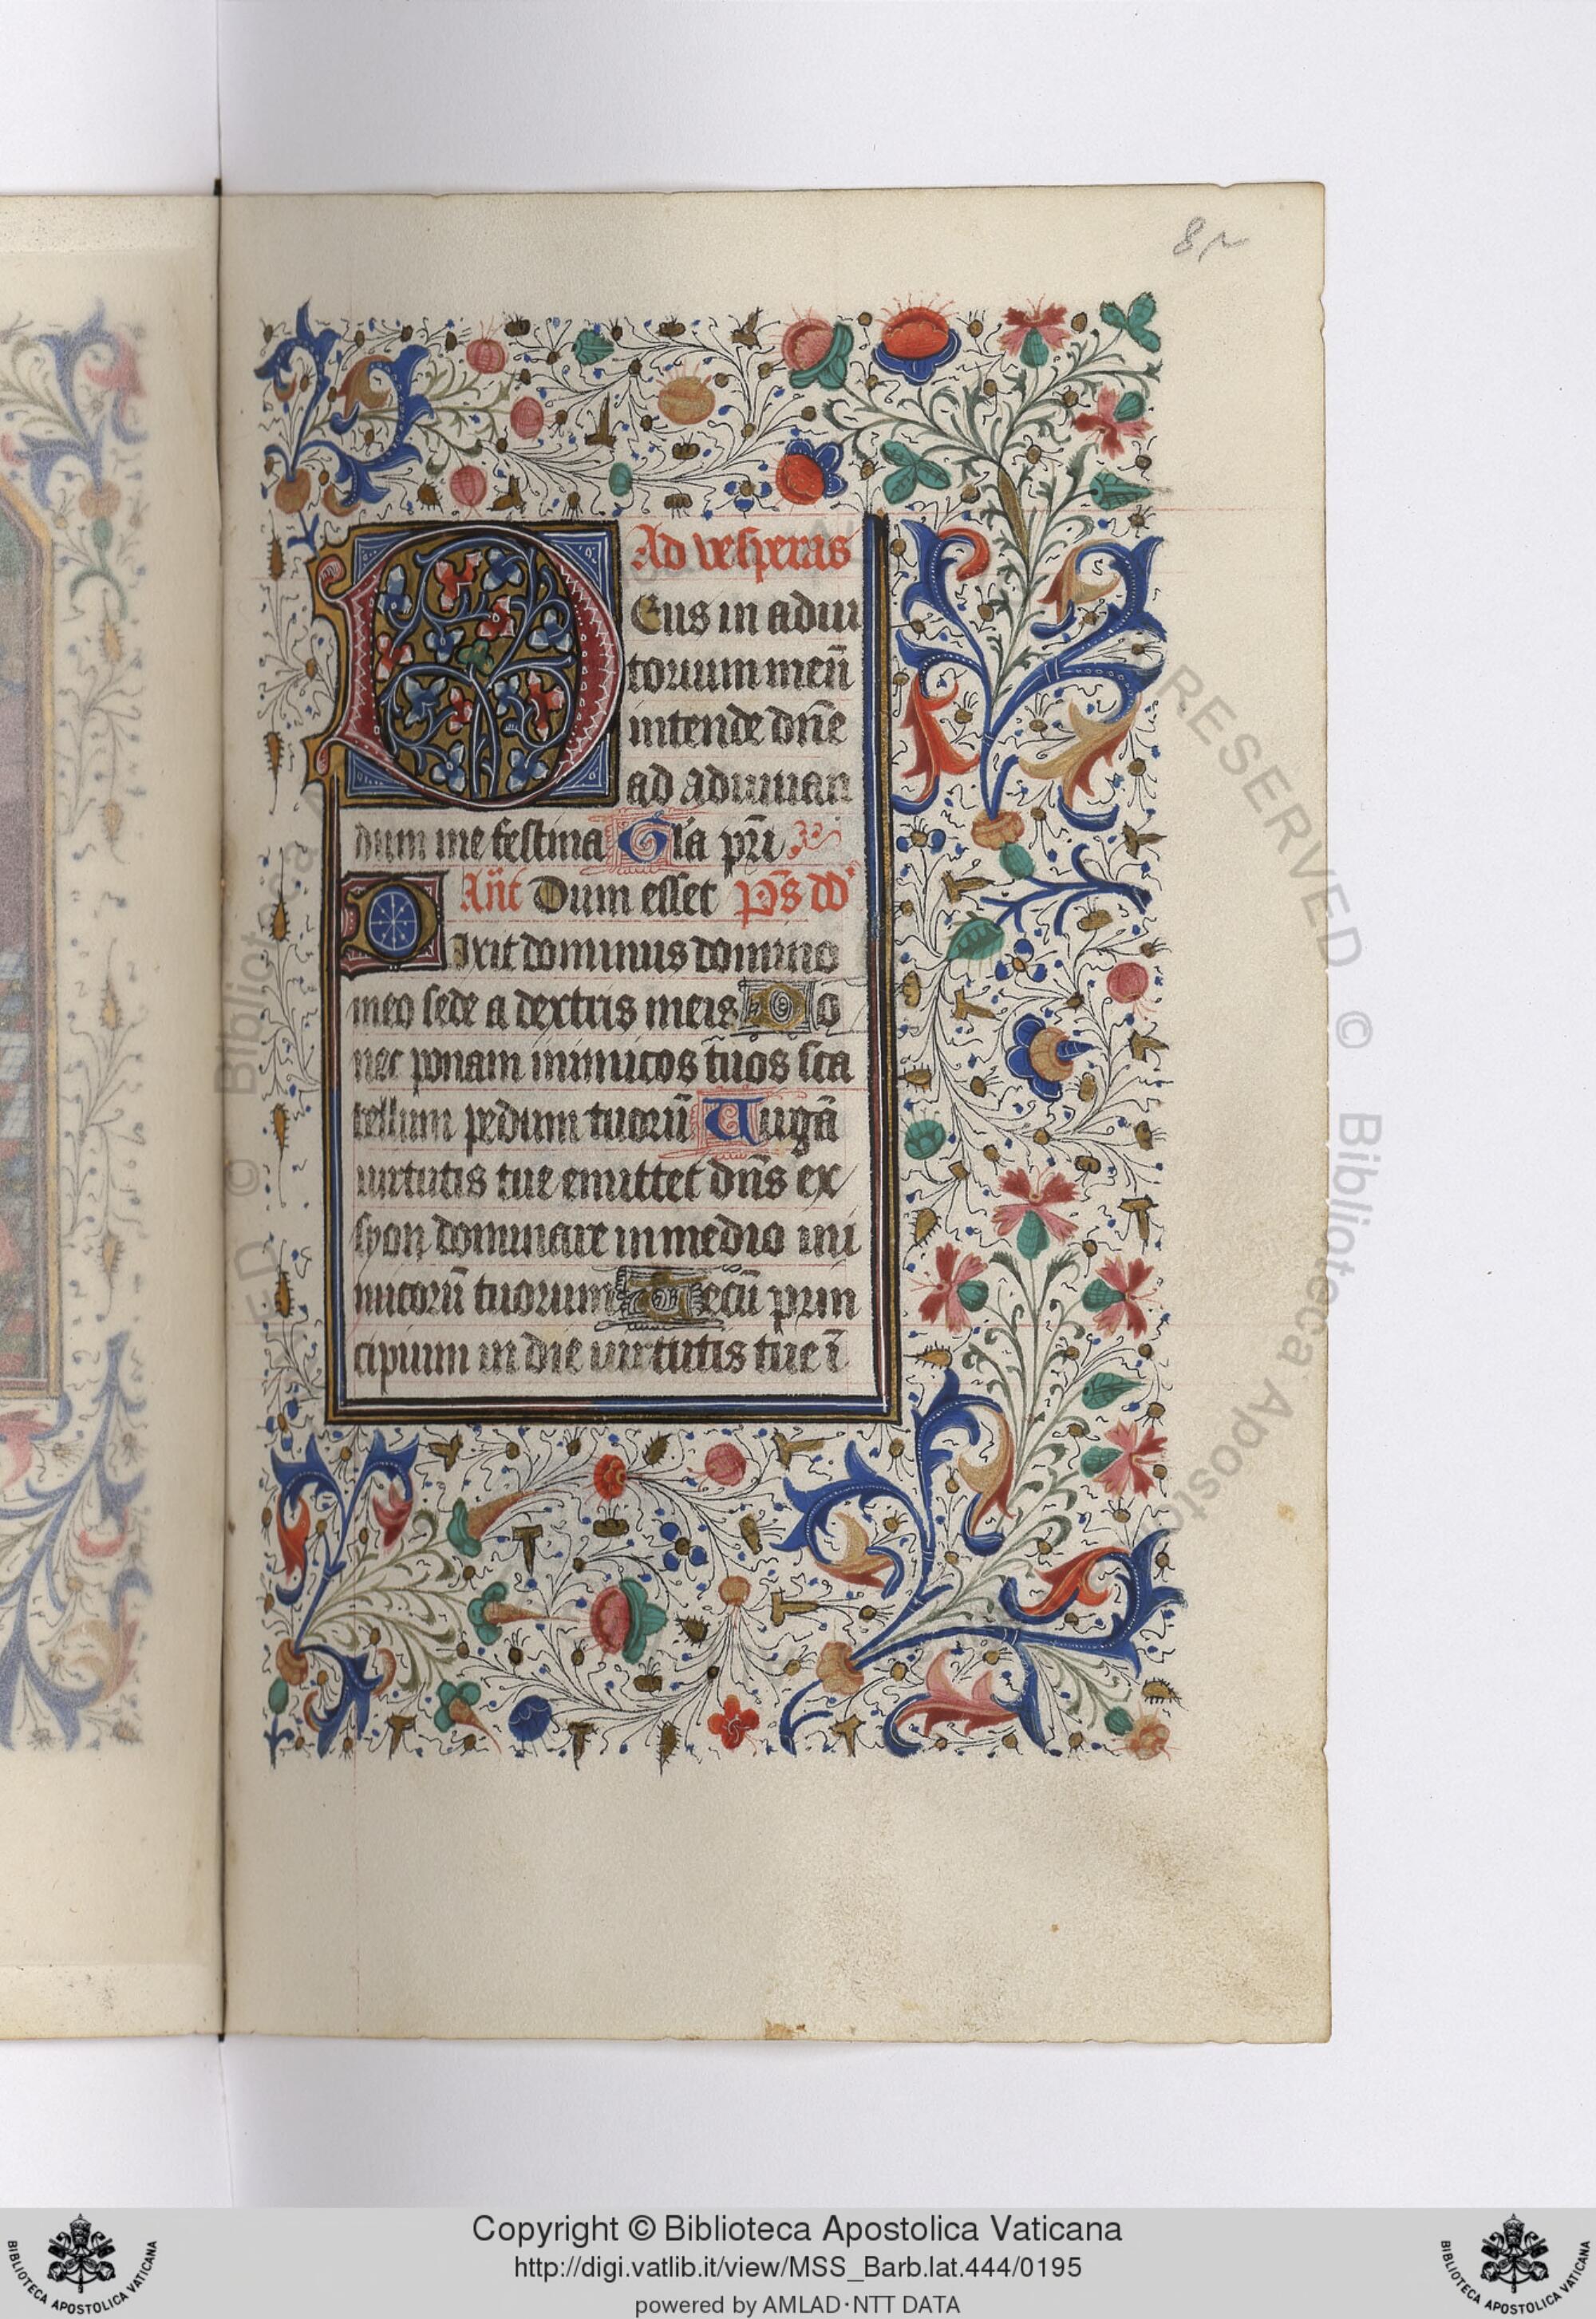 82
Ad vesperas
Deus in adiu
torium meū
intende dn̄e
ad adiuuan
dum me festina Gl'a pr̄i
Añt Dum esset p̄s dd
Dixit dominus domino
meo sede a dextris meis Do
nec ponam inimicos tuos sca
bellum pedum tuorū Uirgā
uirtutis tue emittet dn̄s ex
syon dominare in medio ini
micorū tuorum Tecū prin
cipium in die uirtutis tue ī
RESERVED © Biblioteca Apostolica
Copyright © Biblioteca Apostolica Vaticana
http://digi.vatlib.it/view/MSS_Barb.lat.444/0195
powered by AMLAD·NTT DATA
BIBLIOTECA APOSTOLICA VATICANA
BIBLIOTECA APOSTOLICA VATICANA